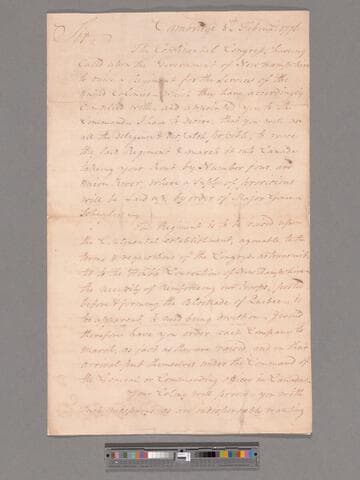 Sir, Cambridge 8th Februy 1776
The Continental Congress having
called upon the Government of New Hampshire
to raise a Regiment for the service of the
United Colonies which they have accordingly
Complied with, and appointed you to the
Command, I have to desire that you will use
all the diligence & dispatch possible, to raise
the said Regiment & march to Canada
taking your Rout by Number four and
Onion River, where a supply of provisions
will be laid up, by order of Major General
Schuyler
The Regiment is to be raised upon
the Continental establishment, agreable to the
terms & requisitions of the Congress
to the Convention of New Hampshire
the necessity of reinforcing our troops, posted
before & forming the Blockade of Quebec is
too apparent to need being mention'd. I would
therefore have you order each Company to
march, as fast as they are raised, and on their
arrival put themselves under the Command of
the General or Commanding officer in Canada.
Your Colony will provide you with
such necessaries as are indispensably